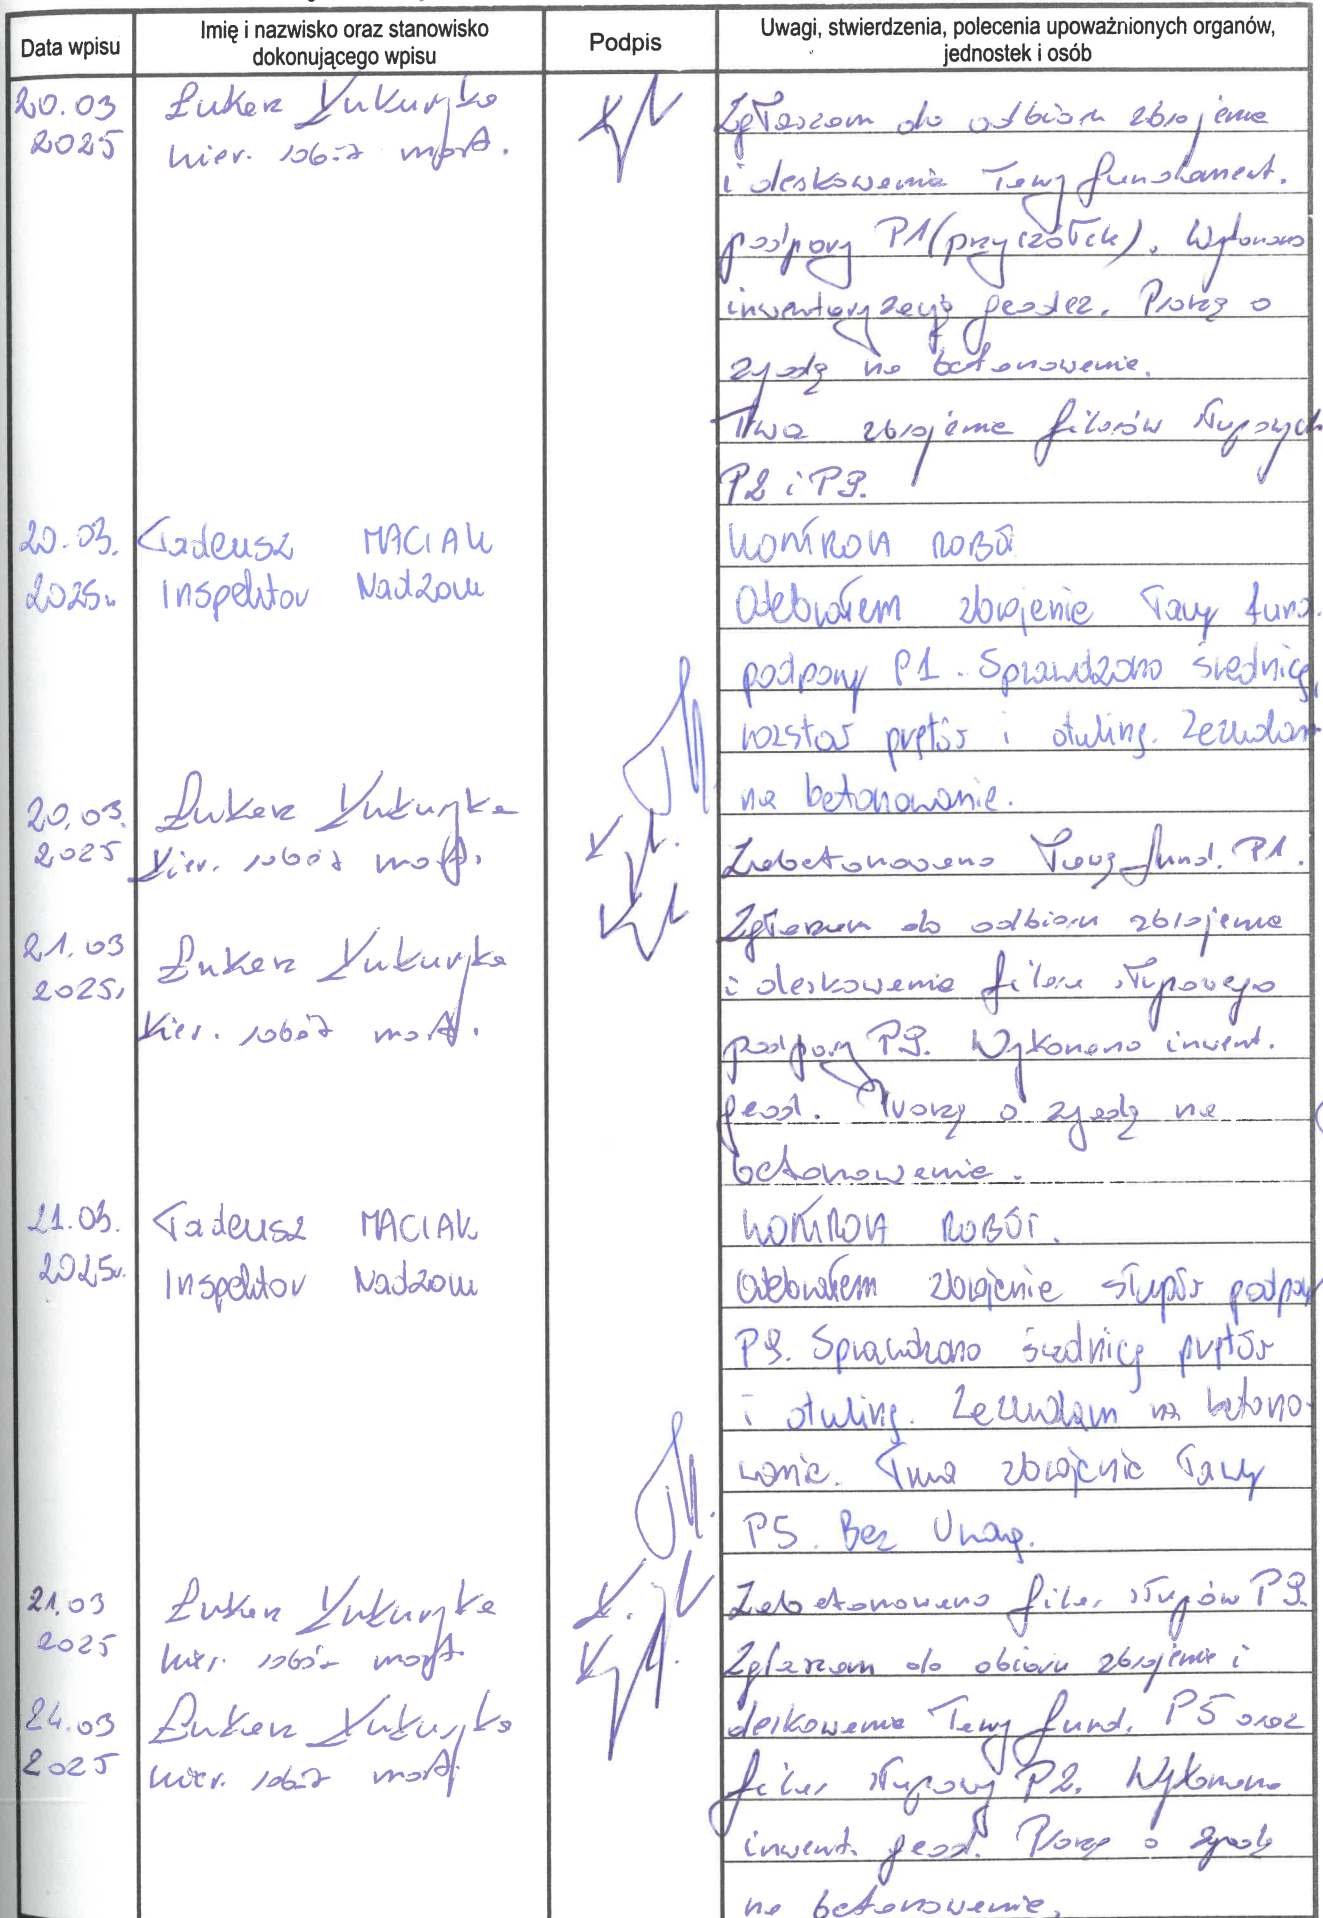 Data wpisu
Imię i nazwisko oraz stanowisko
dokonującego wpisu
Podpis
Uwagi, stwierdzenia, polecenia upoważnionych organów,
jednostek i osób
20.03
2025
Łukasz
kier. robót most.
Zgłaszam do odbioru zbrojenie
i deskowanie ławy fundament.
podpory P1 (przyczółek). Wykonano
inwentaryzację geodez. Proszę o
zgodę na betonowanie.
Trwa zbrojenie filarów słupowych
P2 i P3.
20.03.
2025r.
Tadeusz MACIAK
Inspektor Nadzoru
KONTROLA ROBÓT
Odebrałem zbrojenie ławy fund.
podpory P1. Sprawdzono średnicę,
rozstaw prętów i otulinę. Zezwalam
na betonowanie.
20.03.
2025
Łukasz
Kier. robót most.
Zabetonowano ławę fund. P1.
21.03
2025r
Łukasz
Kier. robót most.
Zgłaszam do odbioru zbrojenie
i deskowanie filara słupowego
podpory P3. Wykonano inwent.
geod. Proszę o zgodę na
betonowanie.
21.03.
2025r.
Tadeusz MACIAK
Inspektor Nadzoru
KONTROLA ROBÓT.
Odebrałem zbrojenie słupów podpory
P3. Sprawdzono średnicę prętów
i otulinę. Zezwalam na betono-
wanie. Trwa zbrojenie ławy
P5. Bez Uwag.
21.03
2025
Łukasz
kier. robót most.
Zabetonowano filar słupów P3.
24.03
2025
Łukasz
kier. robót most.
Zgłaszam do obioru zbrojenie i
deskowanie ławy fund. P5 oraz
filar słupowy P2. Wykonano
inwent. geod. Proszę o zgodę
na betonowanie.